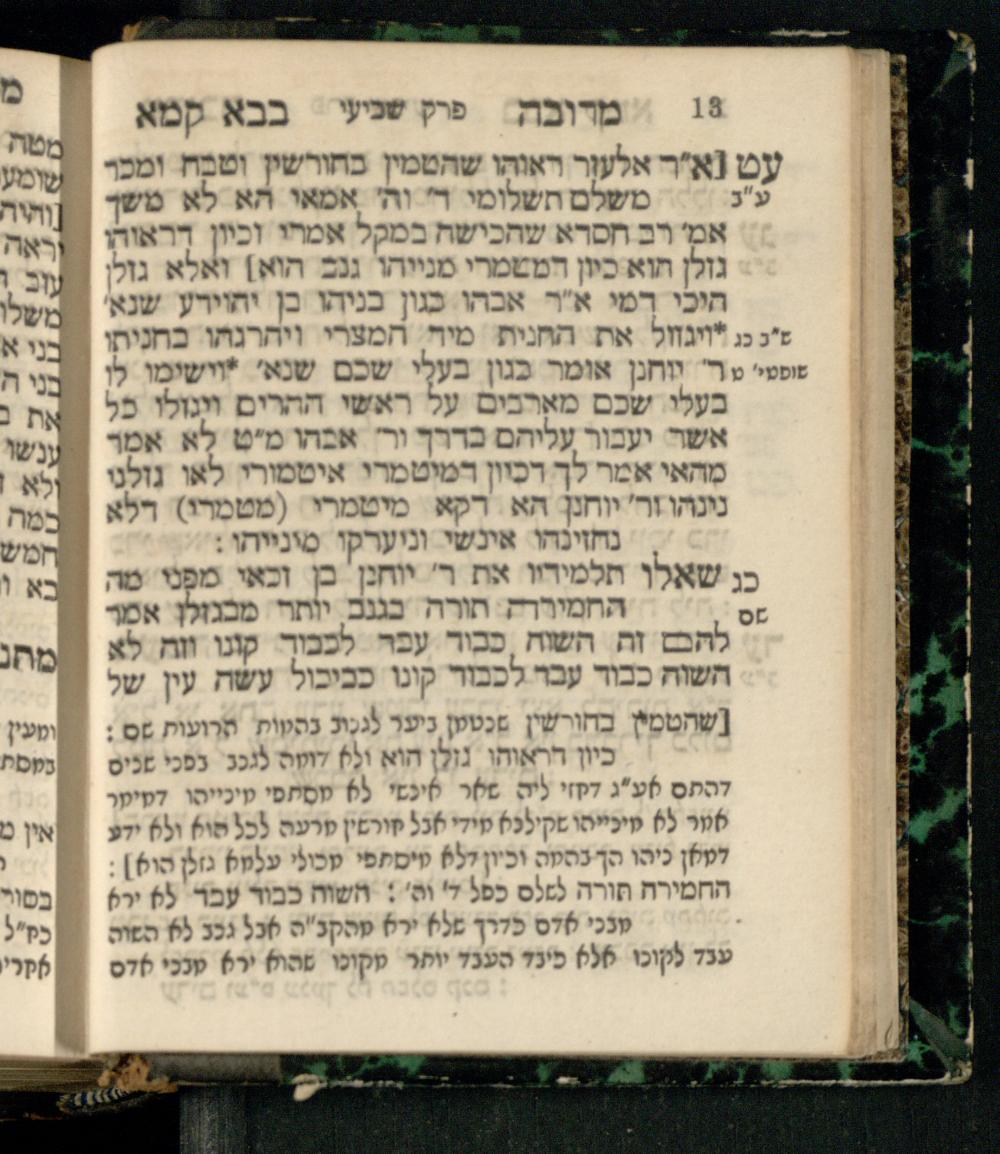 13 מרובה פרק שביעי בבא קמא
עט [א״ר אלעזר ראוהו שהטמין בחורשין וטבח ומכר
ע״ב משלם תשלומי ד׳ וה׳ אמאי הא לא משך
אמ׳ רב חסדא שהכישה במקל אמרי וכיון דראוהו
גזלן הוא כיון דמטמרי מנייהו גנב הוא] ואלא גזלן
היכי דמי א״ר אבהו כגון בניהו בן יהוידע שנא׳
ש״ב כג *ויגזול את החנית מיד המצרי ויהרגהו בחניתו
שופטי׳ ט ר׳ יוחנן אומר כגון בעלי שכם שנא׳ *וישימו לו
בעלי שכם מארבים על ראשי ההרים ויגזלו כל
אשר יעבור עליהם בדרך ור׳ אבהו מ״ט לא אמר
מהאי אמר לך דכיון דמיטמרי איטמורי לאו גזלני
נינהו ור׳ יוחנן הא דקא מיטמרי (מטמרו) דלא
נחזינהו אינשי וניערקו מינייהו :
כג שאלו תלמידיו את ר׳ יוחנן בן זכאי מפני מה
שם החמירה תורה בגנב יותר מבגזלן אמר
להכם זה השוה כבוד עבד לכבוד קונו וזה לא
השוה כבוד עבד לכבוד קונו כביכול עשה עין של
[שהטמין בחורשין שנטמן ביער לגנוב בהמות הרועות שם :
כיון דראוהו גזלן הוא ולא דומה לגנב בפני שנים
דהתם אע״ג דחזי ליה שאר אינשי לא מסתפי מינייהו דמימר
אמר לא מינייהו שקילנא מידי אבל חורשין מרעה לכל הוא ולא ידע
דמאן ניהו הך בהמה וכיון דלא מיסתפי מכולי עלמא גזלן הוא] :
החמירה תורה לשלם כפל ד׳ וה׳ : השוה כבוד עבד לא ירא
מבני אדם כדרך שלא ירא מהקב״ה אבל גנב לא השוה
עבד לקונו אלא כיבד העבד יותר מקונו שהוא ירא מבני אדם